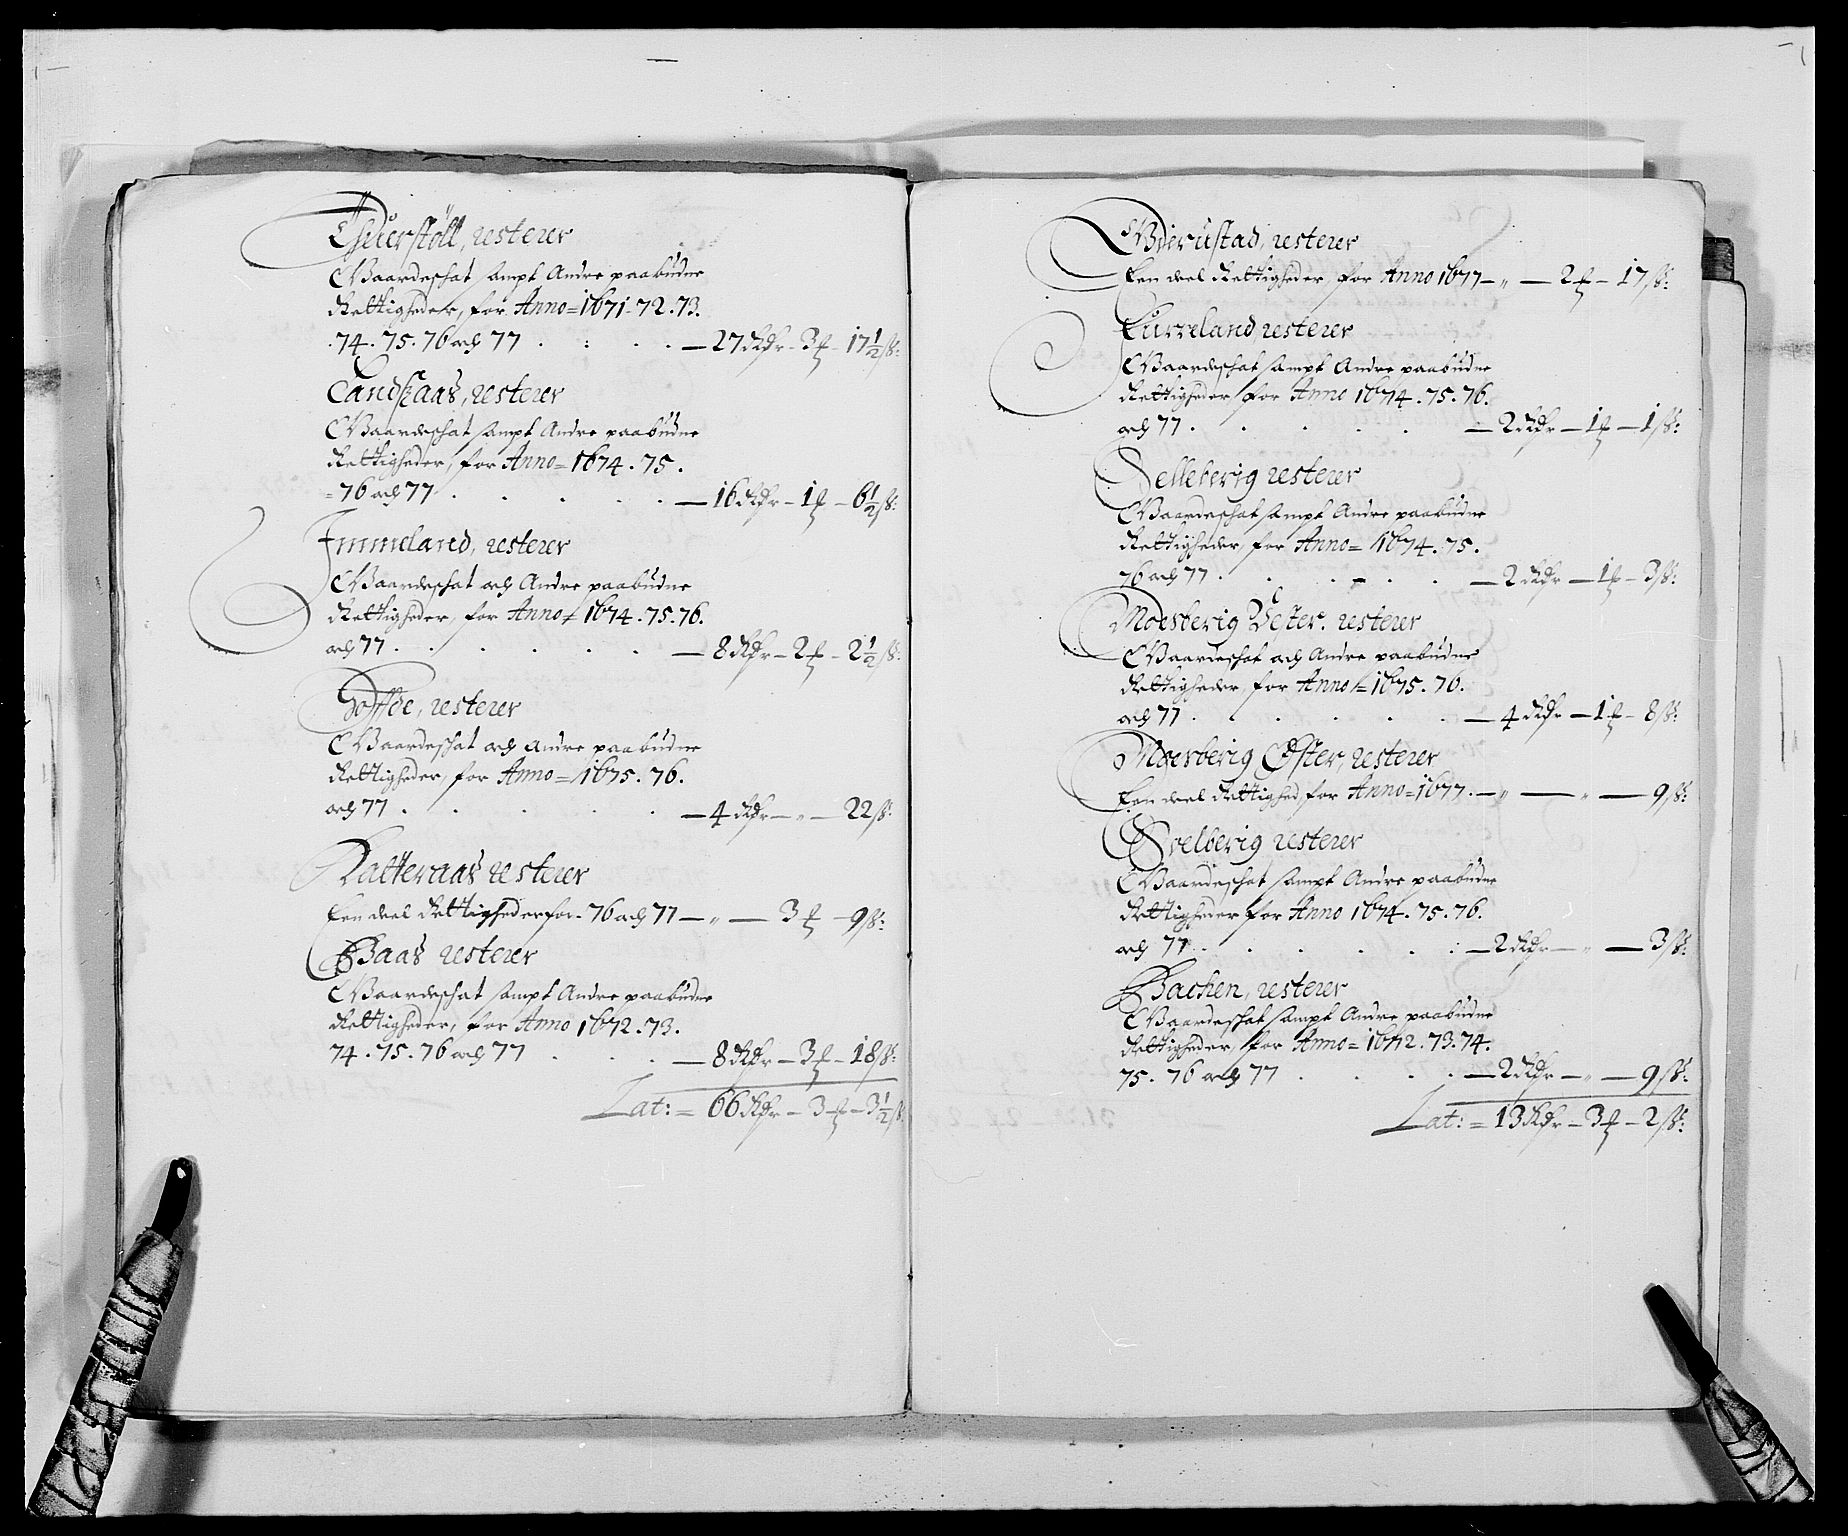 Tþuerstøll, resterer
Gaardeschat sampt Andre paabudne
Rettigheder, for Anno=1671.72.73.
.74.75.76 och 77 . : . . — 27 Rdr – 3 ƒ – 17½ ß:
Landskaas, resterer
Gaardeschat sampt Andre paabudne
Rettigheder, for Anno=1674.75.
=76 och 77 . . . . . — 16 Rdr – 1 ƒ – 6½ ß:
Immeland, resterer
Gaardeschat och Andre paabudne
Rettigheder, for Anno=1674.75.76.
och 77 . . . . . . — 8 Rdr – 2 ƒ – 2½ ß:
resterer
Gaardeschat och Andre paabudne
Rettigheder, for Anno=1675.76.
och 77 . . . . . — 4 Rdr — „ — 22 ß:
Katteraas resterer
Een deel Rettigheder for. 76 och 77 — „ — 3 ƒ – 9 ß:
Baas resterer
Gaardeschat sampt Andre paabudne
Rettigheder, for Anno 1672.73.
74.75.76 och 77 . . . — 8 Rdr – 3 ƒ – 18 ß:
Lat: = 66 Rdr – 3 ƒ – 3½ ß
resterer
Een deel Rettigheder, for Anno 1677 – „ — 2 ƒ – 17 ß:
Kurreland, resterer
Gaardeschat sampt Andre paabudne
Rettigheder, for Anno 1674.75.76.
och 77 . . . . . — 2 Rdr – 1 ƒ – 1 ß:
Selleberig resterer
Gaardeschat sampt Andre paabudne
Rettigheder, for Anno= 1674.75.
76 och 77 . . . . . — 2 Rdr – 1 ƒ – 3 ß:
Moesberig Vester. resterer
Gaardeschat och Andre paabudne
Rettigheder, for Anno=1675.76.
och 77 . . . . . — 4 Rdr – 1 ƒ – 8 ß:
Moesberig Øster, resterer
Een deel Rettighed, for Anno=1677. – „ — „ — 9 ß:
resterer
Gaardeschat sampt Andre paabudne
Rettigheder for Anno 1674.75.76.
och 77 . . . . . : — 2 Rdr — „ — 3 ß:
Bachen, resterer
Gaardeschat sampt Andre paabudne
Rettigheder, for Anno=1672.73.74.
75.76 och 77 . . . . — 2 Rdr — „ — 9 ß:
Lat: = 13 Rdr – 3 ƒ – 2 ß: